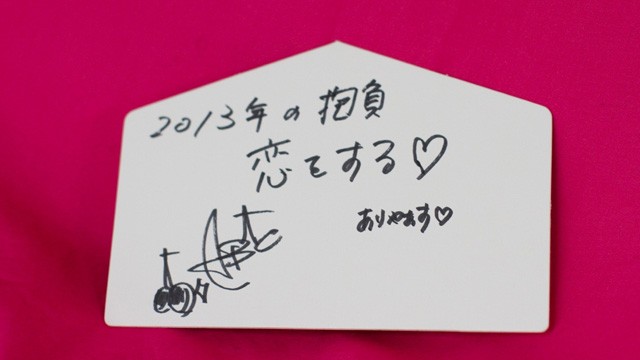 2013年の抱負
恋をする♡
ありやぁす♡